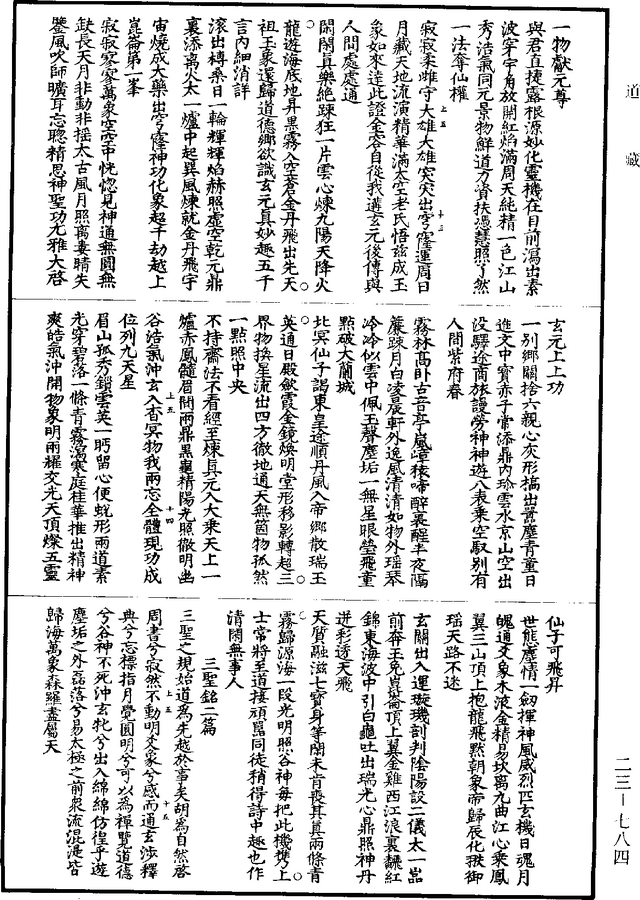 道藏
一物獻元尊
與君直捷露根源妙化靈機在目前瀉出素
波穿宇角放開紅焰滿周天純精一色江山
秀浩氣同元景物鮮道力資扶過慧照了然
一法奪仙權
寂寂柔雌守大雄大雄突突出穹窿運周日
月藏天地流演精華滿太空老氏悟兹成玉
象如來達此證金容自從我遇玄元後傳與
人間處處通
閑閑真樂絶踈狂一片雲心煉九陽天降火
龍遊海底地昇黑霧入空蒼金丹飛出先天
祖玉象還歸道德鄉欲識玄元真妙趣五千
言内細消詳
滚出榑桑日一輪輝輝焰赫照虚空乾元鼎
裏添离火太一爐中起巽風煉就金丹飛宇
宙燒成大藥出穹窿神功化象超千劫越上
崑崙第一峯
寂寂寥寥萬象空空中恍惚見神通無圓無
缺長天月非動非摇太古風月照离婁睛失
鑒風吹師曠耳忘聰精思神聖功尤雅大啓
玄元上上功
一别鄉關捨六親心灰形槁出囂塵青童日
進文中寳赤子常添鼎内珍雲水京山空出
没驛途商旅謾勞神神遊八表乘空馭别有
人間紫府春
霧林高卧古音亭嵐嶂猿啼醉裏醒半夜隔
簾踈月白凌晨軒外逸風清清如物外瑶琴
冷冷似雲中佩玉聲塵垢一無星眼瑩飛童
點破大蘭城
北冥仙子謁東皇途順丹風入帝鄉散瑞玉
英通日殿歛霞金鏡焕明堂形移影轉超三
界物换星流出四方徹地通天無箇物孤然
一點照中央
不持齋法不看經至煉真元入大乘天上一
爐赤鳳髓眉間兩鼎黑龜精陽光照徹明幽
谷浩氣沖玄入杳冥物我兩忘全體現功成
位列九天星
眉山孤秀鎖雲英一眄留心便蜕形兩道素
光穿碧落一條青霧瀉寒庭桂華推出精神
爽皓氣沖開物象明兩耀交光天頂燦五靈
仙子可飛昇
世態塵情一劒揮神風威烈匹玄機日魂月
魄通爻象木液金精易坎离九曲江心乘鳳
翼三山頂上抱龍飛黙朝象帝歸辰化駛御
瑶天路不迷
玄關出入運璇璣剖判陰陽設二儀太一嵓
前奔玉兔崑崙頂上翼金雞西江浪裏飜紅
錦東海波中引白龜吐出瑞光心鼎照神丹
迸彩透天飛
天質融滋七寳身等閑未肯喪其真兩條青
霧歸源海一段光明照谷神每把此機擕上
士常將至道接頑嚚同徒稍得詩中趣也作
清閑無事人
三聖銘二篇
三聖之規始道為先越於事矣胡為自然啓
周書兮寂然不動明爻象兮感而通玄渉釋
典兮忘標指月覺圓明兮可以為禪覽道德
兮谷神不死沖玄牝兮出入綿綿仿徨乎遊
塵垢之外磊落兮易太極之前衆流混混皆
歸海萬象森羅盡屬天
二三—七八四